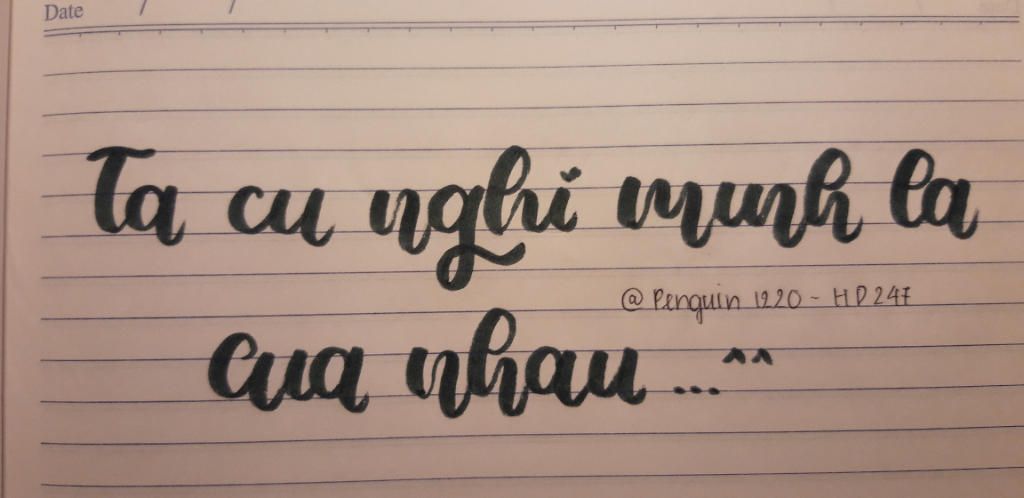 Date / /
Ta cu nghi minh la
@ Penguin 1220 - HD247
cua nhau ...^^